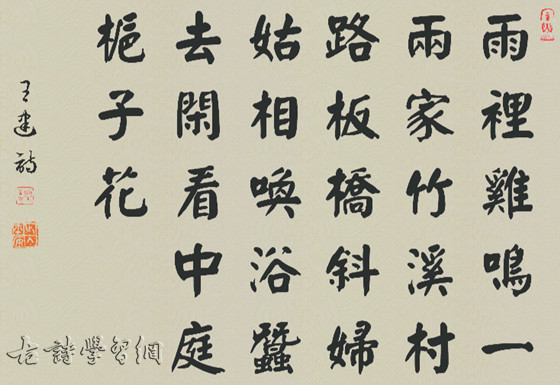 雨裡雞鳴一
兩家竹溪村
路板橋斜婦
姑相喚浴蠶
去閑看中庭
梔子花
王建詩
古詩學習網